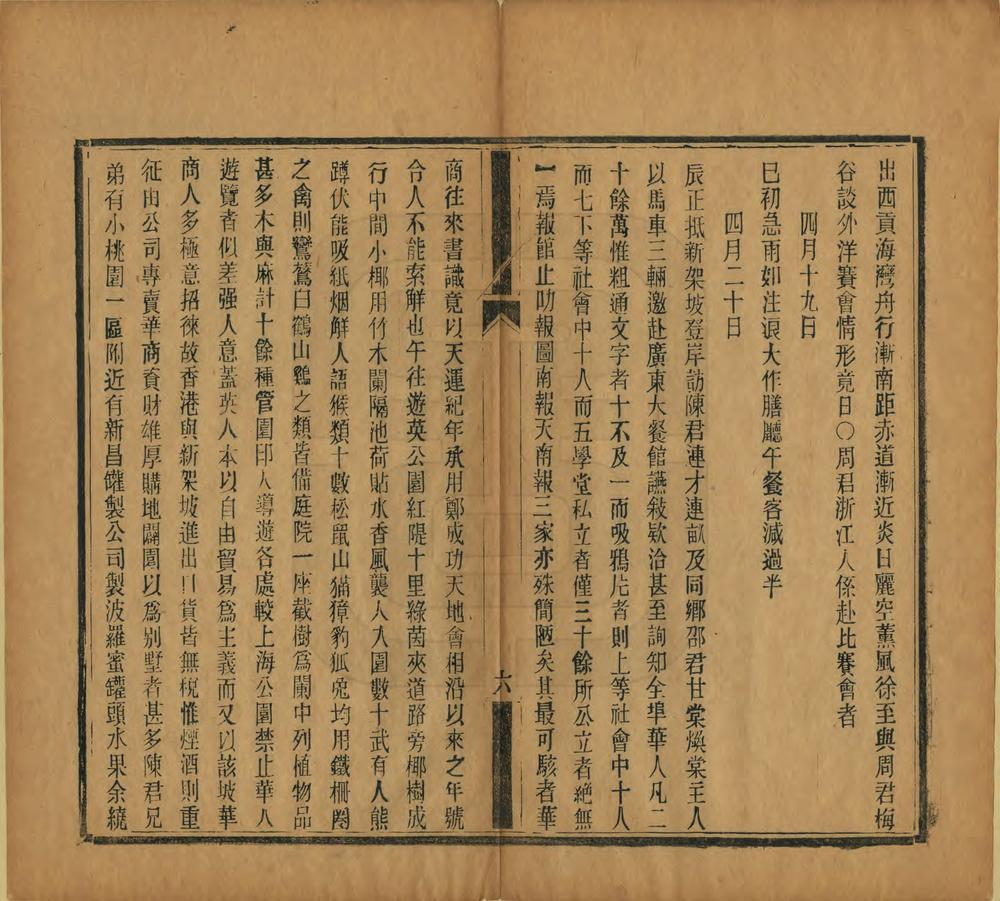 出西貢海灣舟行漸南距赤道漸近炎日麗空薰風徐至與周君梅
谷談外洋賽會情形竟日〇周君浙江人係赴比賽會者
四月十九日
巳初急雨如注浪大作膳廳午餐客減過半
四月二十日
辰正抵新架坡登岸訪陳君連才連畝及同鄉邵君甘棠煥棠主人
以馬車三輛邀赴廣東大餐館讌敍欵洽甚至詢知全埠華人凡二
十餘萬惟粗通文字者十不及一而吸鴉片者則上等社會中十人
而七下等社會中十人而五學堂私立者僅三十餘所公立者絕無
一焉報館止叻報圖南報天南報三家亦殊簡陋矣其最可駭者華
六
商往來書識竟以天運紀年承用鄭成功天地會相沿以來之年號
令人不能索解也午往遊英公園紅隄十里綠茵夾道路旁椰樹成
行中間小椰用竹木闌隔池荷貼水香風襲人入園數十武有人熊
蹲伏能吸紙烟解人語猴類十數松鼠山貓獐豹狐兎均用鐵柵圈
之禽則鸞鶖白鶴山鷄之類皆備庭院一座截樹爲闌中列植物品
甚多木與麻計十餘種管園印人導遊各處較上海公園禁止華人
遊覽者似差强人意蓋英人本以自由貿易爲主義而又以該坡華
商人多極意招徠故香港與新架坡進出口貨皆無稅惟煙酒則重
征由公司專賣華商資財雄厚購地闢園以爲別墅者甚多陳君兄
弟有小桃園一區附近有新昌罐製公司製波羅蜜罐頭水果余繞